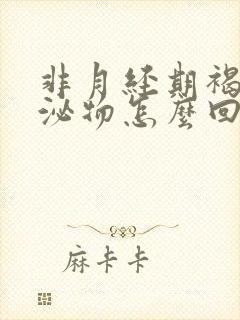 非月经期褐
泌物怎麼回
麻卡卡